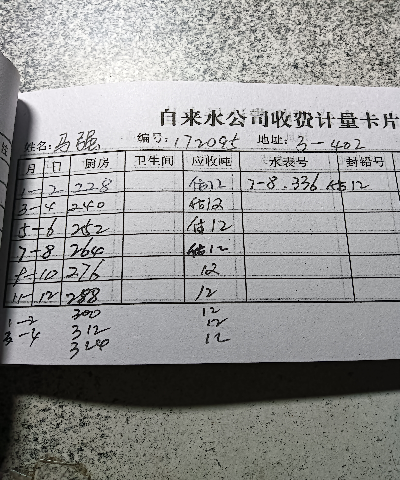 自来水公司收费计量卡片
姓名: 马强 编号: 172095 地址: 3-402
月 日 厨房 卫生间 应收吨 水表号 封铅号
1-2 228 估12 7-8.336 估12
3-4 240 估12
5-6 252 估12
7-8 264 估12
9-10 276 12
11-12 288 12
1-2 300 12
3-4 312 12
324 12